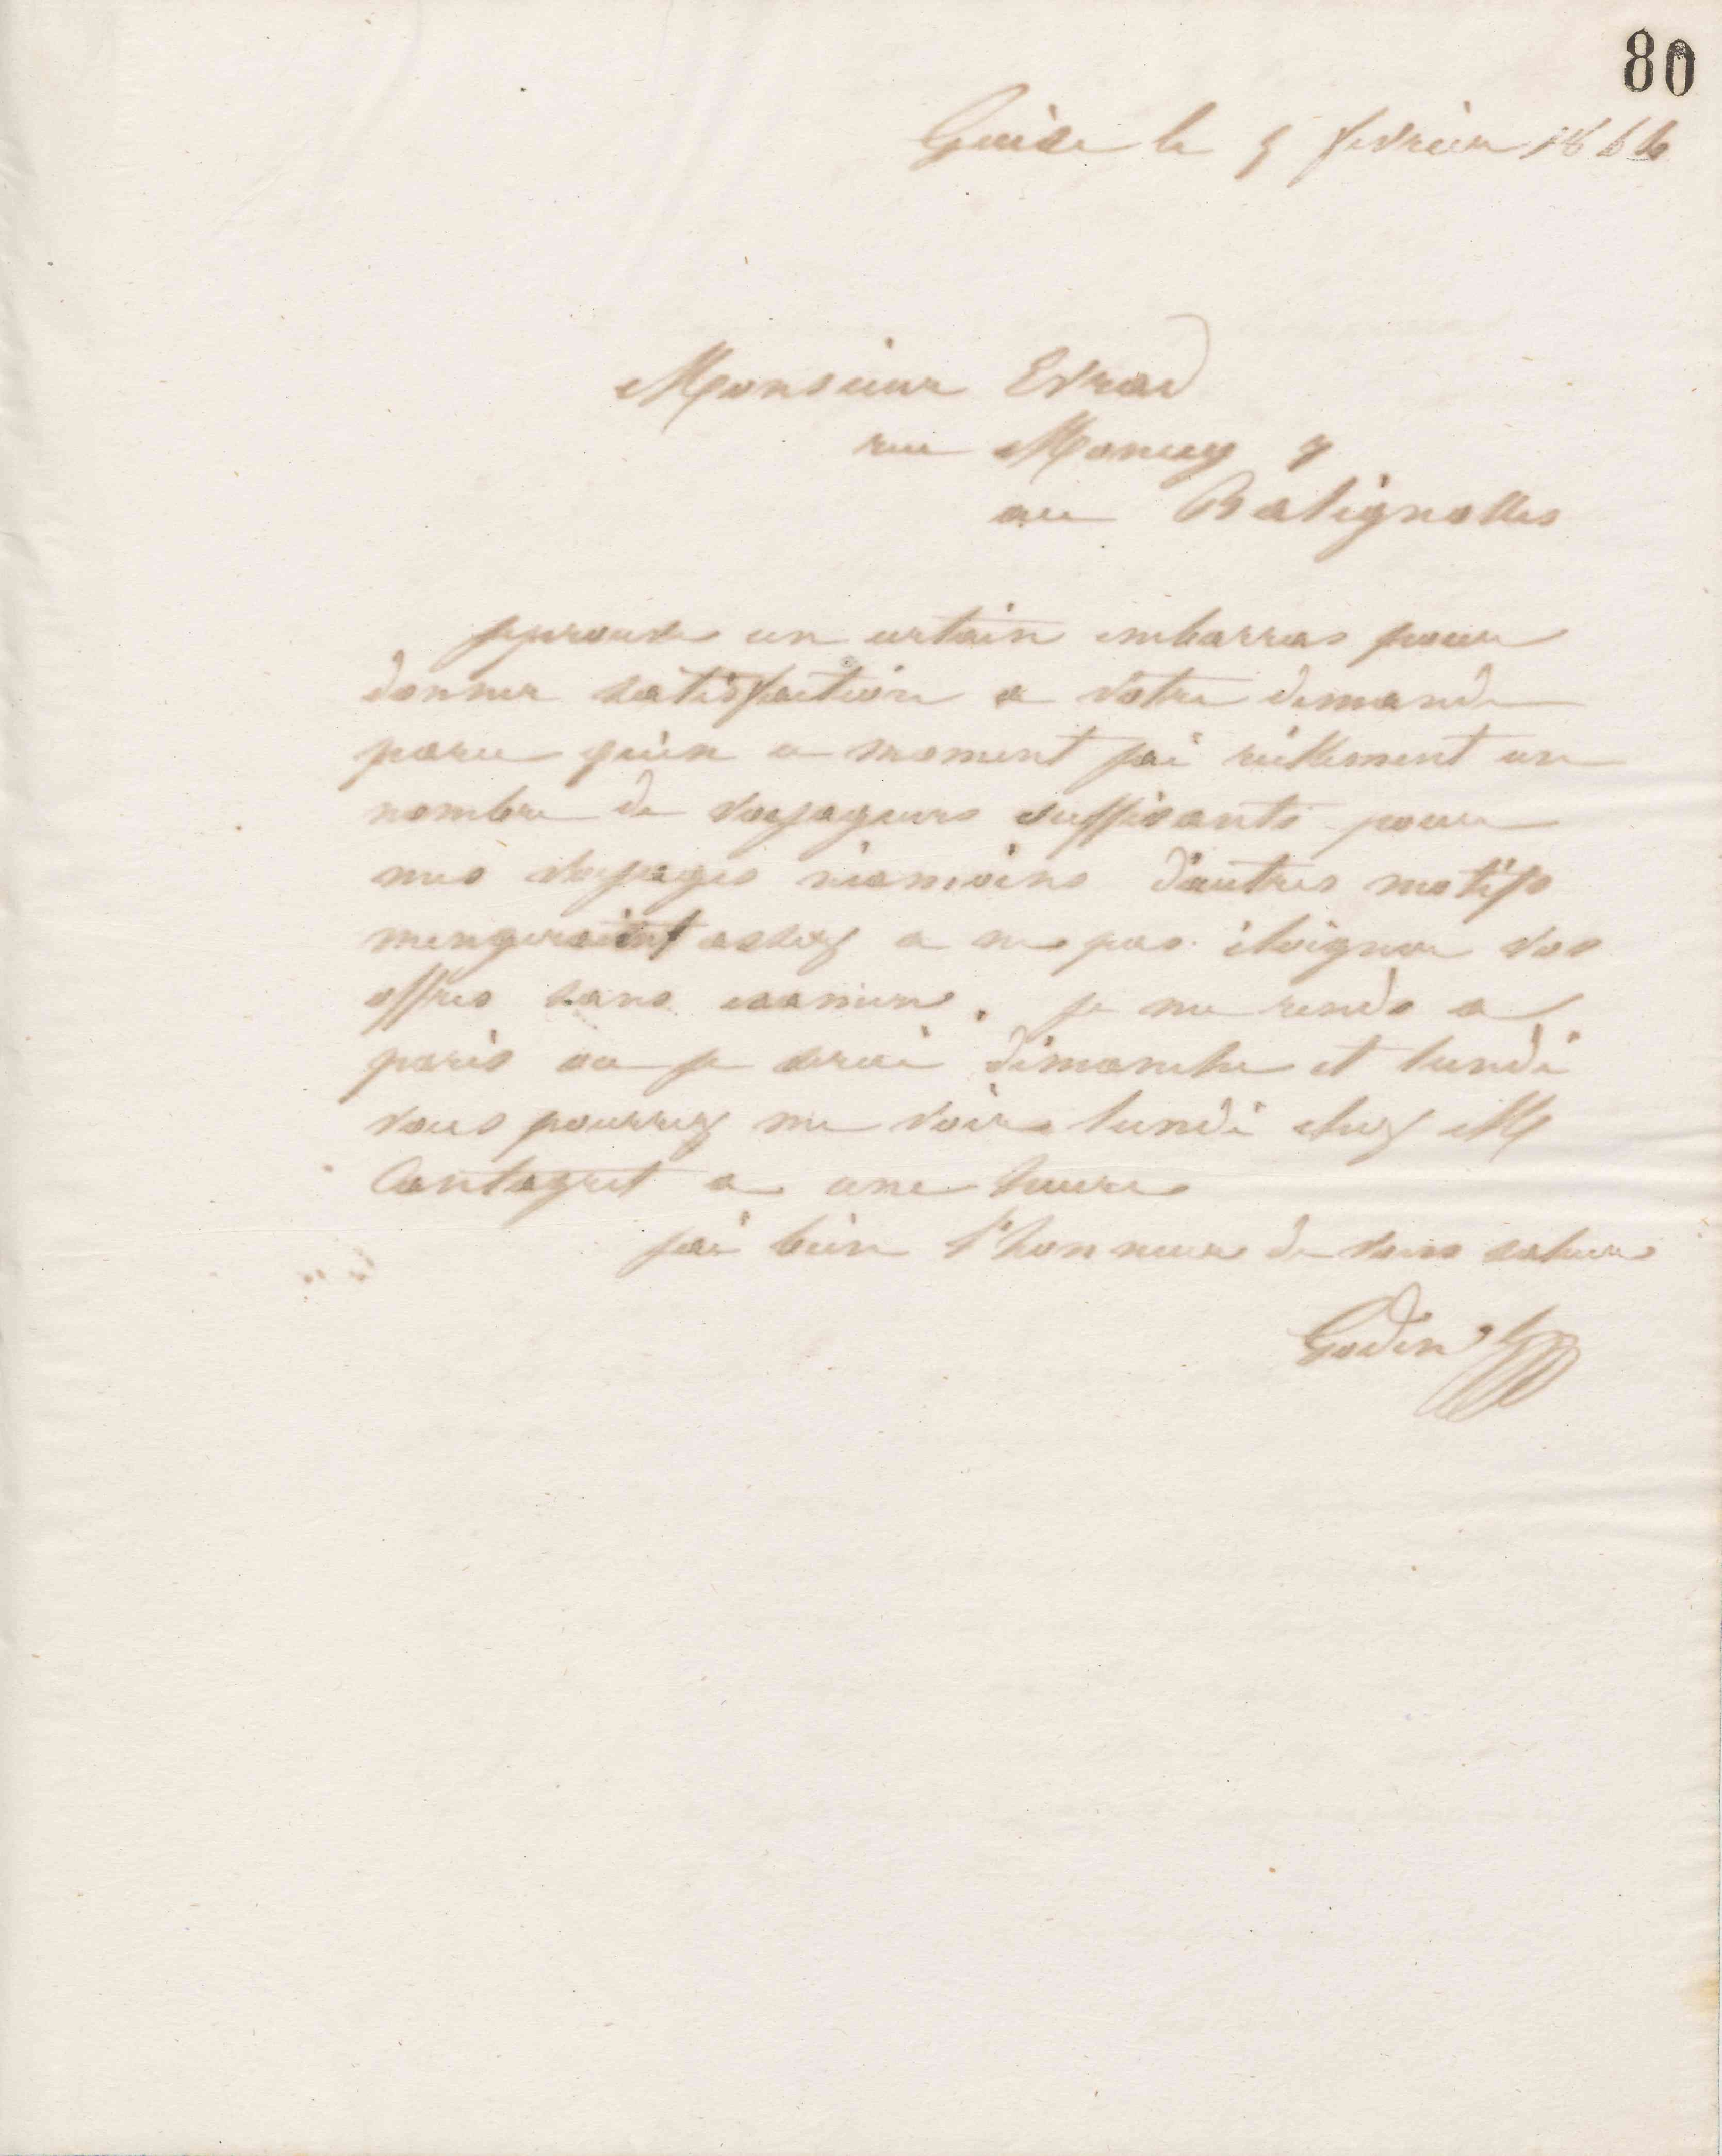 80
Guise le 5 fevrier 1864
Monsieur Evrad
rue Moncey 7
au Batignolles
jeprouve un certain embarras pour
donner satisfaction a votre demande
parce qu'en ce moment j'ai réellement un
nombre de voyageurs suffisants pour
mes voyages néamoins d'autres motifs
mengeraient assez a ne pas éloigner vos
offres sans examen. je me rends a
paris ou je serai dimanche et lundi
vous pourrez me voir lundi chez M
Cantagrel a une heure
jai bien l'honneur de vous saluer
Godin